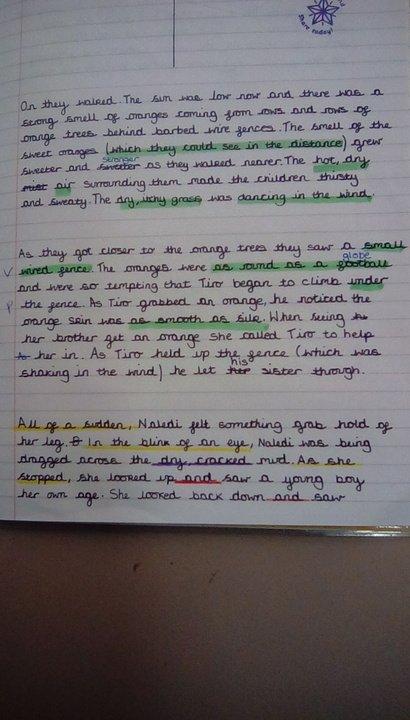 share today!
On they walked. The sun was low now and there was a
strong smell of oranges coming from rows and rows of
orange trees behind barbed wire fences. The smell of the
sweet oranges (which they could see in the distance) grew
stronger
sweeter and sweeter as they walked nearer. The hot, dry
mist air surrounding them made the children thirsty
and sweaty. The dry, itchy grass was dancing in the wind.
As they got closer to the orange trees they saw a small
globe
wired fence. The oranges were as round as a football
and were so tempting that Tiro began to climb under
the fence. As Tiro grabbed an orange, he noticed the
orange skin was as smooth as silk. When seeing
her brother get an orange she called Tiro to help
her in. As Tiro held up the fence (which was
his
shaking in the wind) he let her sister through.
All of a sudden, Naledi felt something grab hold of
her leg. In the blink of an eye, Naledi was being
dragged across the dry, cracked mud. As she
stopped, she looked up and saw a young boy
her own age. She looked back down and saw